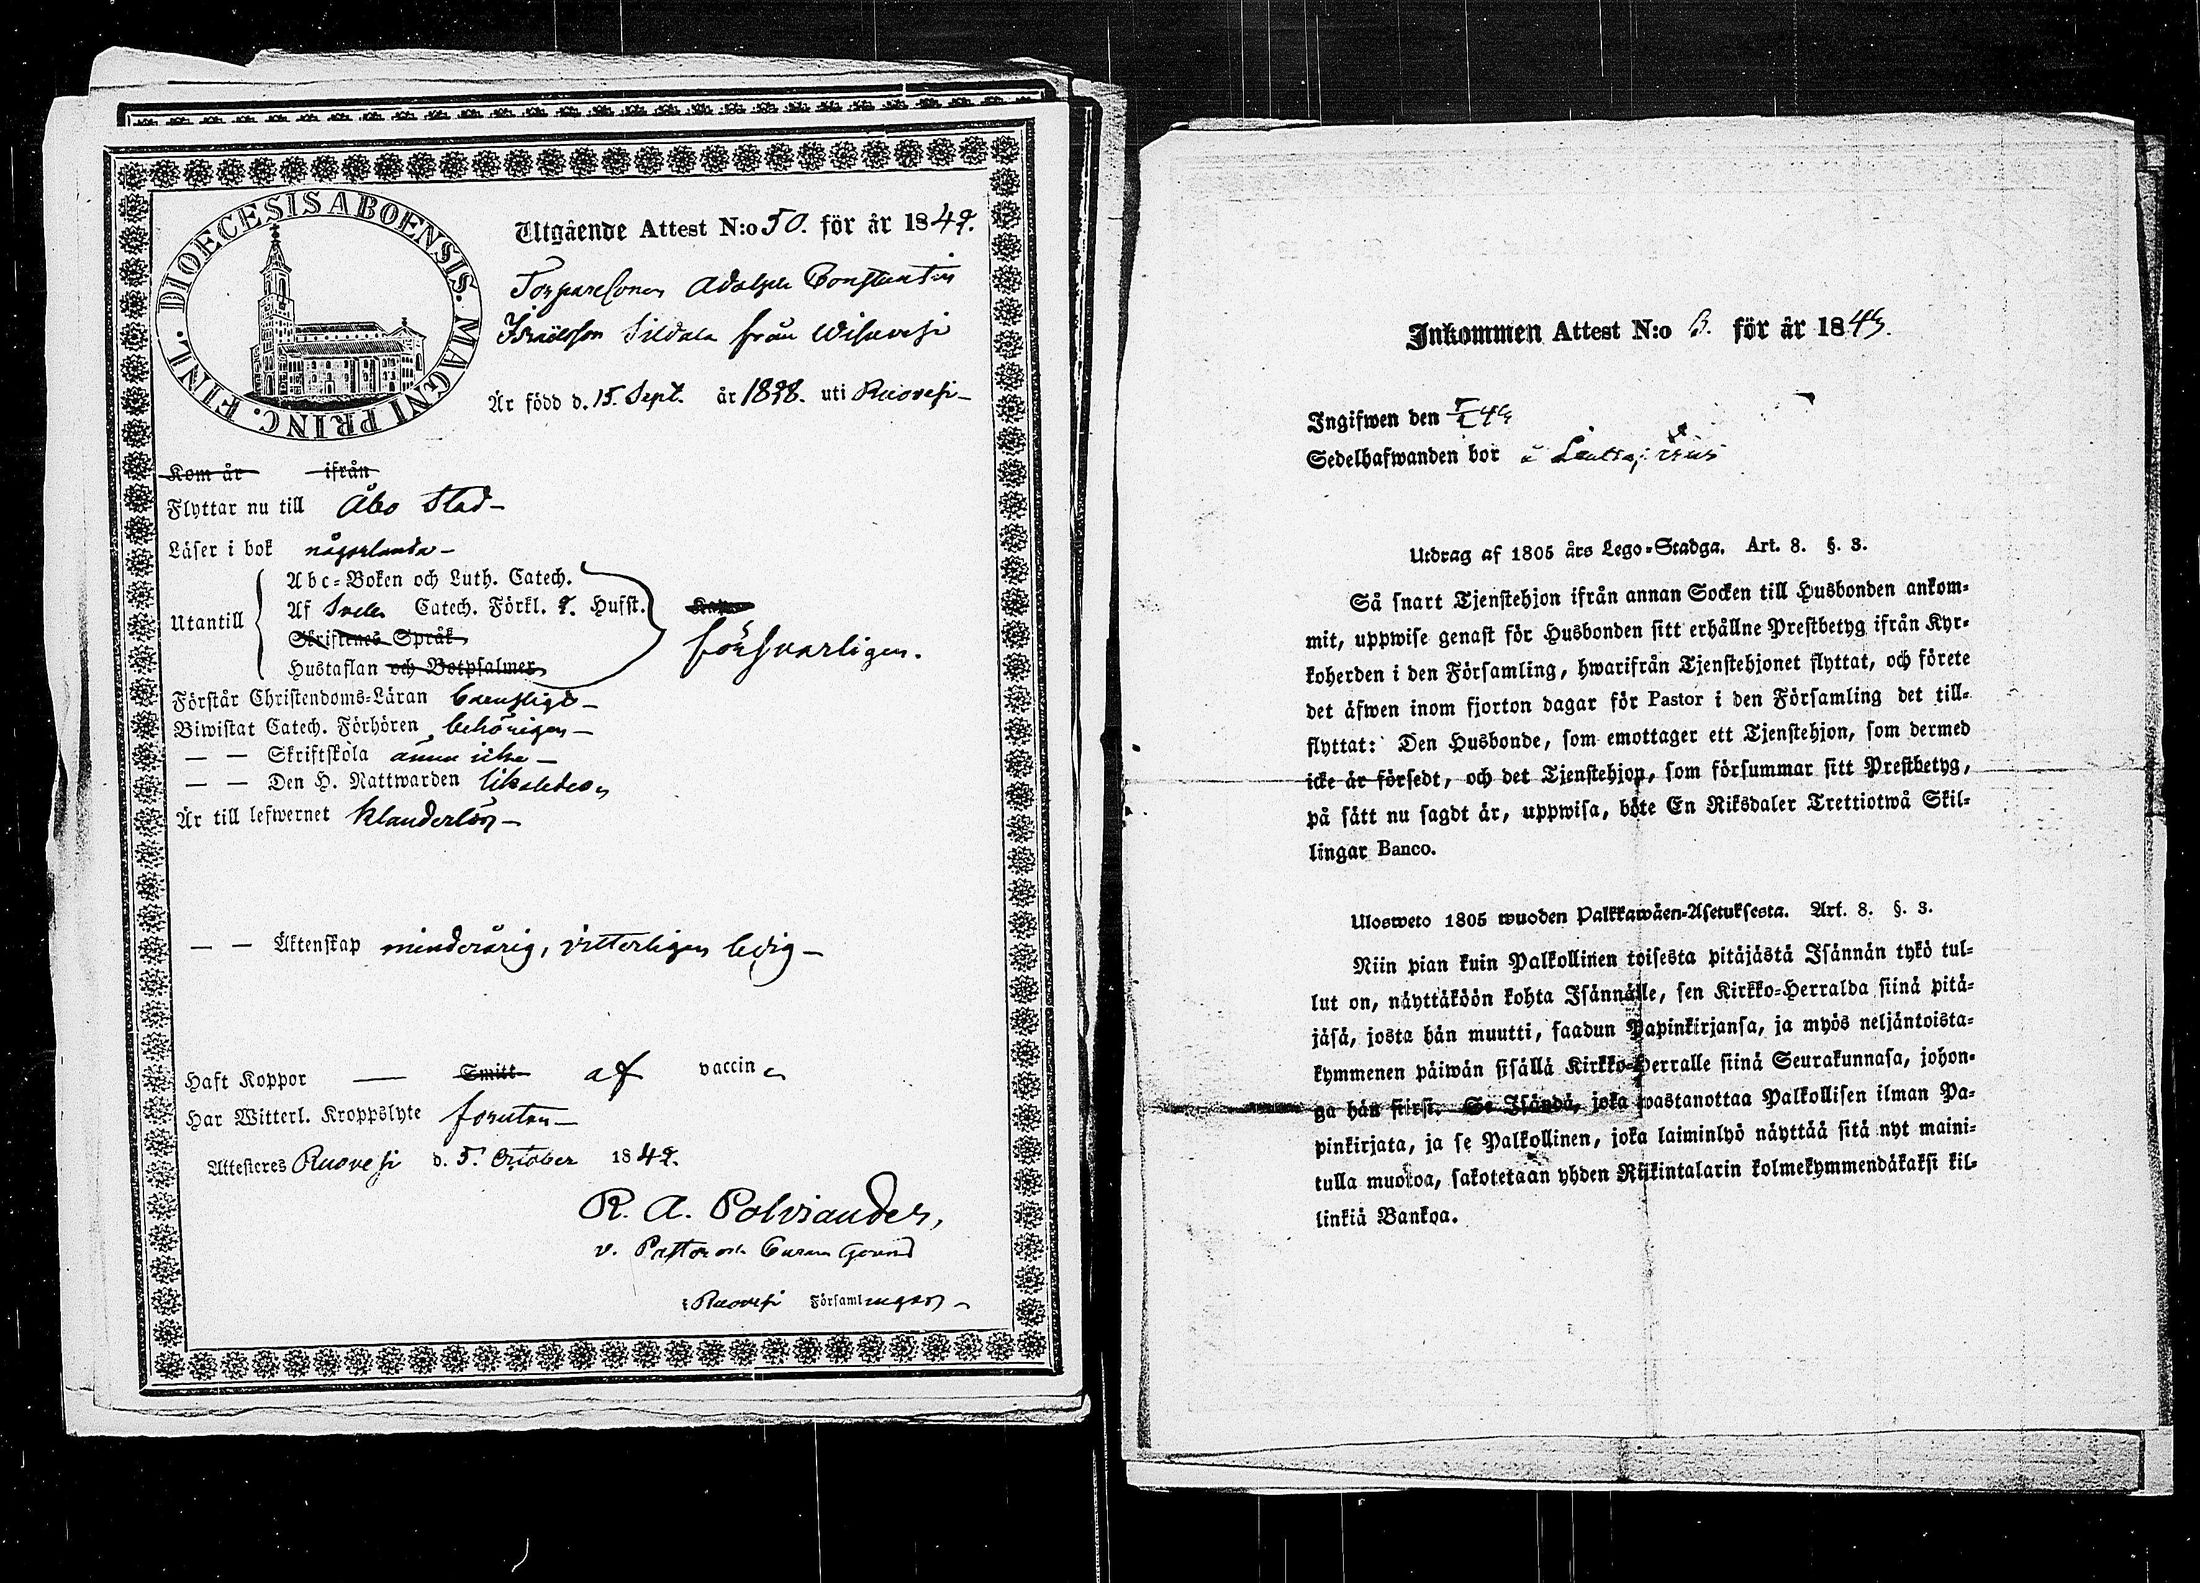 DIOECESIS ABOENSIS. MAGNI PRINC. FINL.
Utgående Attest N:o 50. för år 1842.
Torparesonen Adolph Constantin
Israëlsson Sildala från Wisuvesi
Är född d. 15. Sept. år 1828. uti Ruovesi—
Kom år ifrån
Flyttar nu till Åbo Stad—
Läser i bok någorlunda—
Utantill
Abc-Boken och Luth. Catech.
Af Svebel. Catech. Förkl. Husst.
Skriftenes Språk
Hustaflan och Botpsalmer
försvarligen.
Förstår Christendoms-Läran barnsligt—
Biwistat Catech. Förhören behörigen—
— — Skriftskola ännu icke—
— — Den H. Nattwarden likaledes
Är till lefwernet klanderlös—
— — Äktenskap minderårig, vitterligen ledig—
Haft Koppor — Smitt af vaccin
Har Witterl. Kroppslyte förutan—
Attesteres Ruovesi d. 5. October 1842.
R. A. Polviander,
v. Pastor och Curam Gerens
i Ruovesi Församlingar
Inkommen Attest N:o för år 184
Ingifwen den
Sedelhafwanden bor
Utdrag af 1805 års Lego-Stadga. Art. 8. §. 3.
Så snart Tjenstehjon ifrån annan Socken till Husbonden ankom-
mit, uppwise genast för Husbonden sitt erhållne Prestbetyg ifrån Kyr-
koherden i den Församling, hwarifrån Tjenstehjonet flyttat, och förete
det äfwen inom fjorton dagar för Pastor i den Församling det till-
flyttat: Den Husbonde, som emottager ett Tjenstehjon, som dermed
icke är försedt, och det Tjenstehjon, som försummar sitt Prestbetyg,
på sätt nu sagdt är, uppwisa, böte En Riksdaler Trettiotwå Skil-
lingar Banco.
Ulosweto 1805 wuoden Palkkawäen-Asetuksesta. Art. 8. §. 3.
Niin pian kuin Palkollinen toisesta pitäjästä Isännän tykö tul-
lut on, näyttäköön kohta Isännälle, sen Kirkko-Herralda siinä pitä-
jäsä, josta hän muutti, saadun Papinkirjansa, ja myös neljäntoista-
kymmenen päiwän sisällä Kirkko-Herralle siinä Seurakunnasa, johon-
ga hän siirsi. Se Isändä, joka wastanottaa Palkollisen ilman Pa-
pinkirjata, ja se Palkollinen, joka laiminlyö näyttää sitä nyt maini-
tulla muotoa, sakotetaan yhden Riikintalarin kolmekymmendäkaksi kil-
linkiä Bankoa.